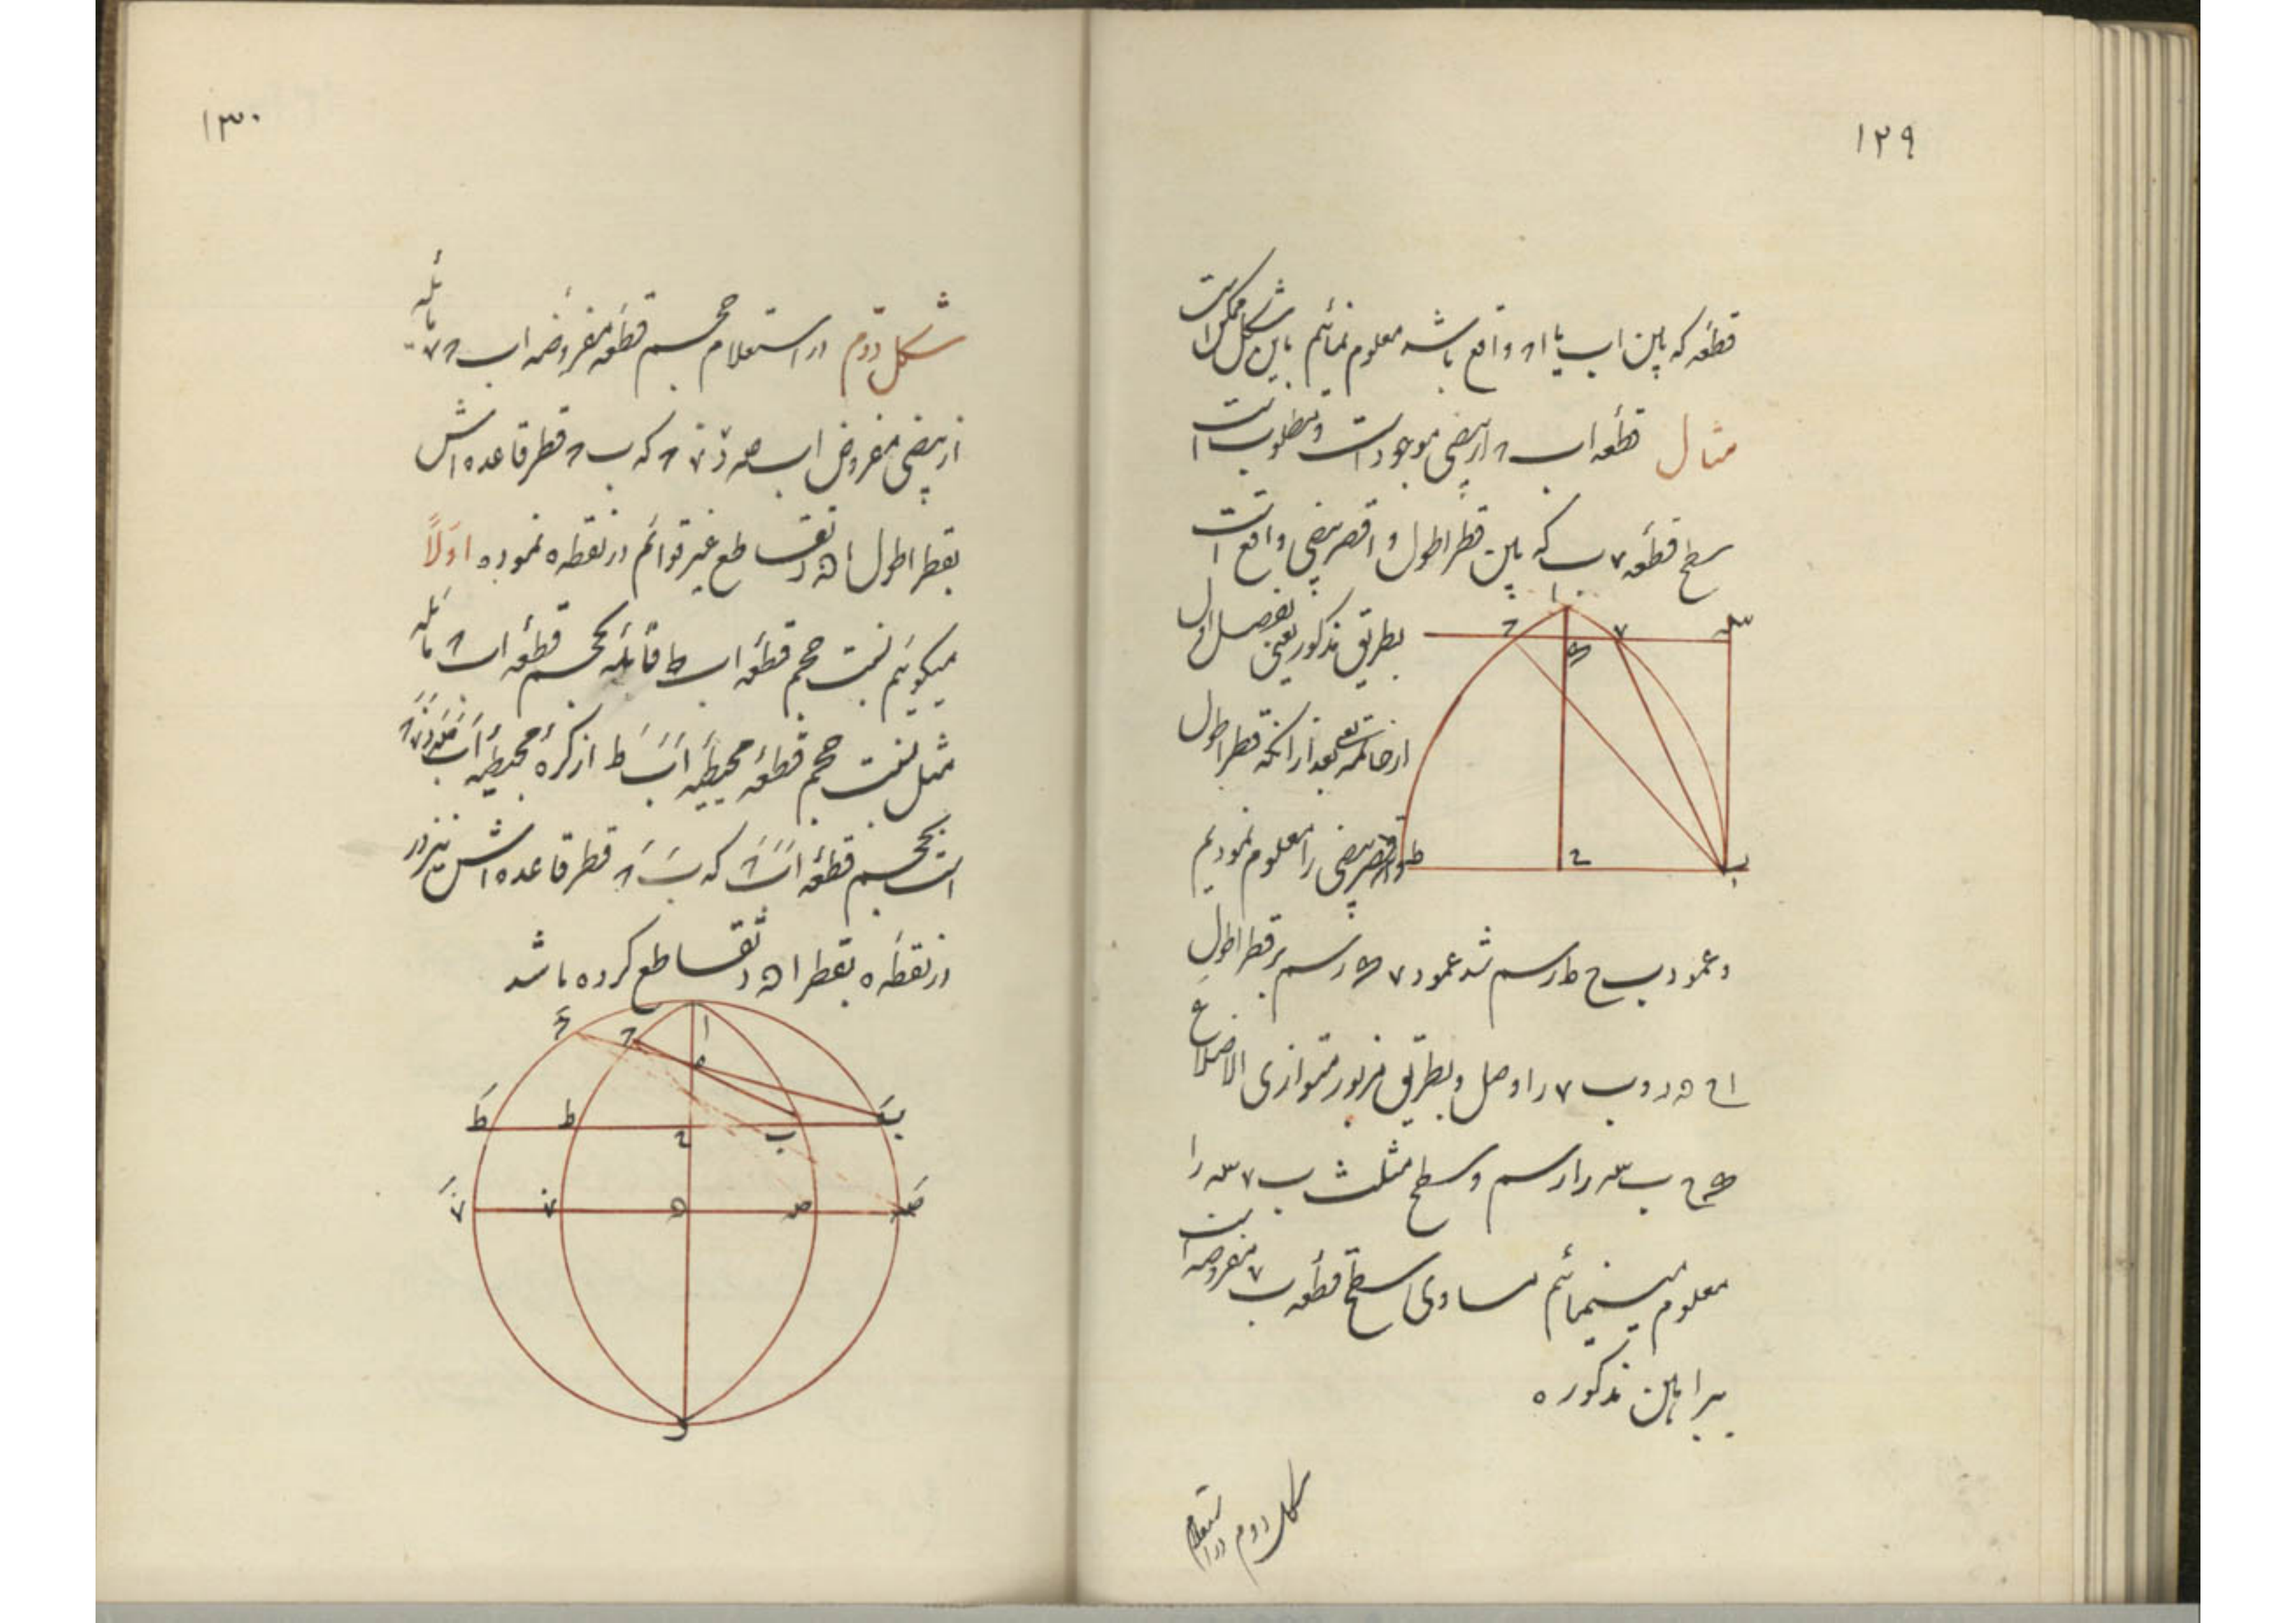 ۱۲۹
قطعه که بین اب یا ا۸ واقع باشد معلوم نمائیم باین شکل ممکن است
مثال قطعه اب ۸ از بیضی موجود است و مطلوب است
سطح قطعه ۷ ب که بین قطر اطول و اقصر بیضی واقع است
بطریق مذکور یعنی تفصیل اول
از خاتمه بعد از آنکه قطر اطول
و اقصر بیضی را معلوم نمودیم
و عمود ب ح ط رسم شد عمود ۷ رسم بر قطر اطول
و ب ۷ را وصل و بطریق مزبور متوازی الاضلاع
ح ب سه را رسم و سطح مثلث ب ۷ سه را
معلوم مینمائیم مساوی سطح قطعه ب ۷ مفروضه است
ببراهین مذکوره
شکل دوم در استعلام
۱۳۰
شکل دوم در استعلام حجم قطعه مفروضه اب ۸ مائله
از بیضی مفروض اب صه که ب ۸ قطر قاعده اش
بقطر اطول ا ه د تقاطع غیر قوائم در نقطه ه نموده اولاً
میگوئیم نسبت حجم قطعه اب ط قائمه بحجم قطعه اب ۸ مائله
مثل نسبت حجم قطعه محیطیه اَبَ طَ از کره محیطیه
است بحجم قطعه که بَ ۸ قطر قاعده اش نیز در
در نقطه ه بقطر ا ه د تقاطع کرده باشد